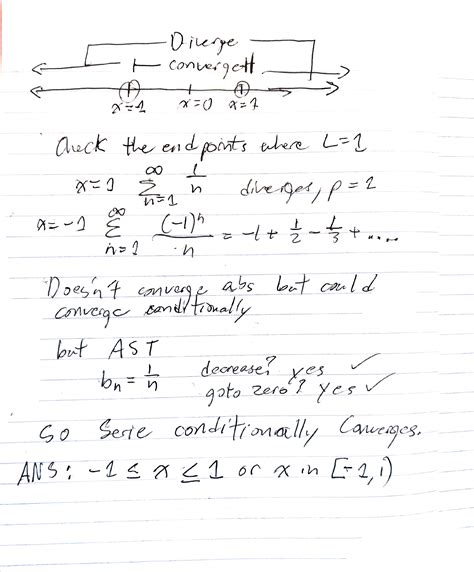 Diverge
converge
x=-1 x=0 x=1
Check the endpoints where L=1
x=1 ∞ Σ n=1 1/n diverges, p=1
x=-1 ∞ Σ n=1 (-1)^n/n = -1 + 1/2 - 1/3 + ....
Does'nt converge abs but could
converge conditionally
but AST
b_n = 1/n decrease? yes ✓
goto zero? yes ✓
so Serie conditionally Converges.
ANS: -1 ≤ x ≤ 1 or x in [-1,1)